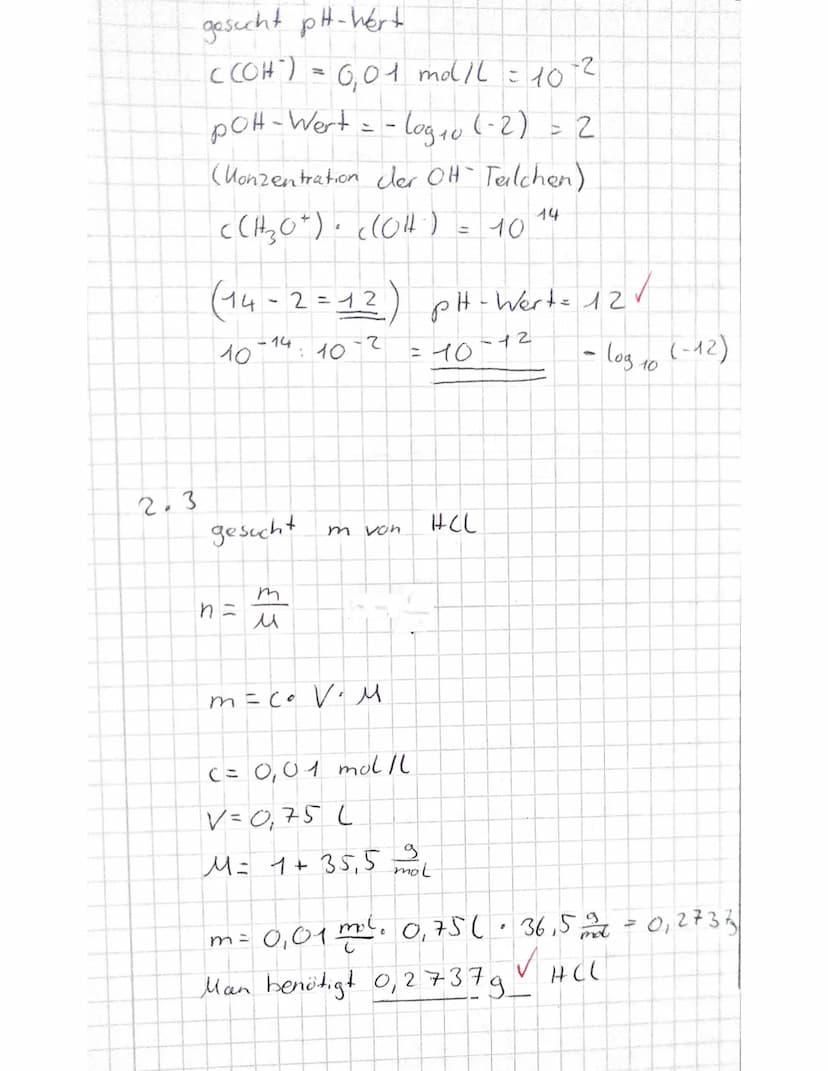 gesucht pH-Wert
c(OH⁻) = 0,01 mol/L = 10⁻²
pOH-Wert = - log₁₀ (-2) = 2
(Konzentration der OH⁻ Teilchen)
c(H₃O⁺) · c(OH⁻) = 10¹⁴
(14 - 2 = 12) pH-Wert = 12 ✓
10⁻¹⁴ : 10⁻² = 10⁻¹² - log₁₀ (-12)
2.3
gesucht m von HCL
n = m/M
m = c · V · M
c = 0,01 mol/L
V = 0,75 L
M = 1 + 35,5 g/mol
m = 0,01 mol/L · 0,75 L · 36,5 g/mol = 0,2737g
Man benötigt 0,2737g ✓ HCl